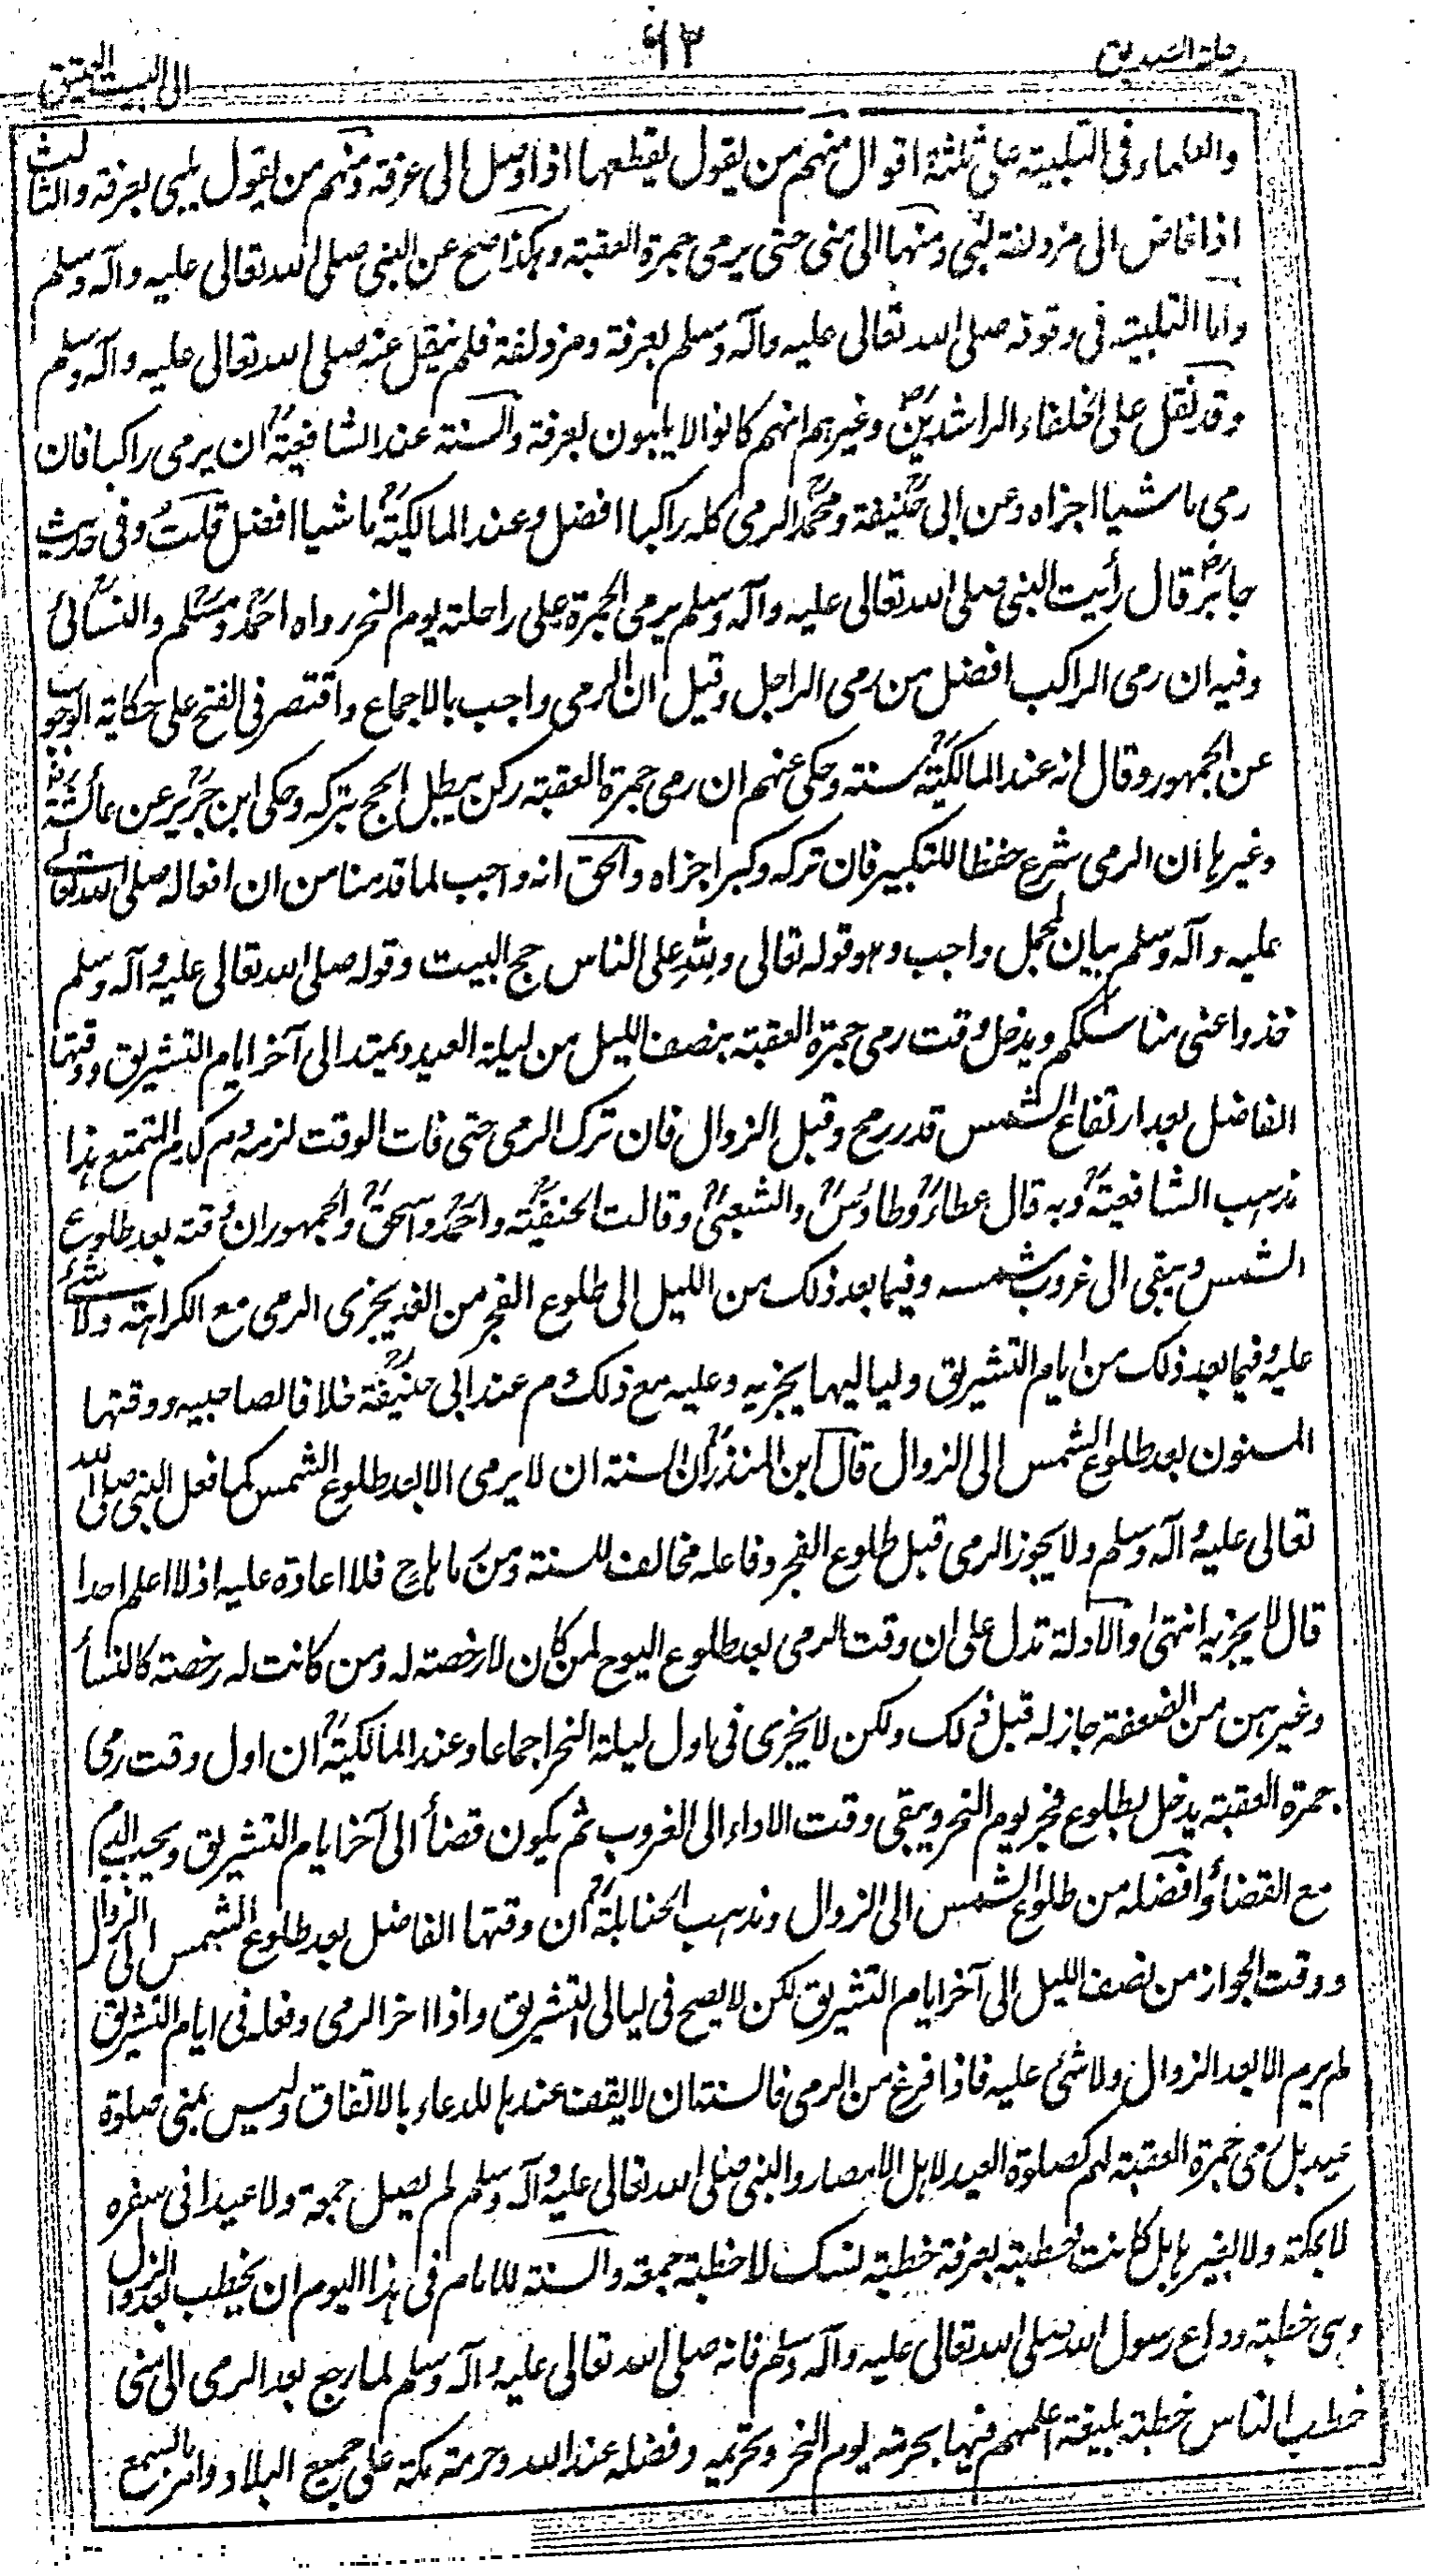 رحلة الصديق ٦٢ الى البيت العتيق
والعلماء فى التلبية على ثلثة اقوال منهم من يقول يقطعها اذا وصل الى عرفة ومنهم من يقول يلبى بعرفة والثالث
اذا فاض الى مزدلفة لبى ومنها الى منى حتى يرمى جمرة العقبة وهكذا صح عن النبى صلى الله تعالى عليه وآله وسلم
واما التلبية فى وقوفه صلى الله تعالى عليه وآله وسلم بعرفة ومزدلفة فلم ينقل عنه صلى الله تعالى عليه وآله وسلم
وقد نقل على الخلفاء الراشدينؓ وغيرهم انهم كانوا لا يلبون بعرفة والسنة عند الشافعيةؒ ان يرمى راكبا فان
رمى ماشيا اجزاه وعن ابى حنيفةؒ ومحمدؒ الرمى كله راكبا افضل وعند المالكيةؒ ماشيا افضل قلت وفى حديث
جابرؓ قال رأيت النبى صلى الله تعالى عليه وآله وسلم يرمى الجمرة على راحلته يوم النحر رواه احمدؒ ومسلمؒ والنسائىؒ
وفيه ان رمى الراكب افضل من رمى الراجل وقيل ان الرمى واجب بالاجماع واقتصر فى الفتح على حكاية الوجوب
عن الجمهور وقال انه عند المالكيةؒ سنة وحكى عنهم ان رمى جمرة العقبة ركن يبطل الحج بتركه وحكى ابن جريرؒ عن عائشةؓ
وغيرها ان الرمى شرع حفظا للتكبير فان تركه وكبر اجزاه والحق انه واجب لما قدمنا من ان افعاله صلى الله تعالى
عليه وآله وسلم بيان لمجمل واجب وهو قوله تعالى ولله على الناس حج البيت وقوله صلى الله تعالى عليه وآله وسلم
خذوا عنى مناسككم ويدخل وقت رمى جمرة العقبة بنصف الليل من ليلة العيد ويمتد الى آخر ايام التشريق ووقتها
الفاضل بعد ارتفاع الشمس قدر رمح وقبل الزوال فان ترك الرمى حتى فات الوقت لزمه دم كدم التمتع هذا
مذهب الشافعيةؒ وبه قال عطاءؒ وطاوسؒ والشعبىؒ وقالت الحنفيةؒ واحمدؒ واسحقؒ والجمهور ان وقته بعد طلوع
الشمس ويبقى الى غروب شمسه وفيما بعد ذلك من الليل الى طلوع الفجر من الغد يجزى الرمى مع الكراهة ولا شئ
عليه وفيما بعد ذلك من ايام التشريق ولياليها يجزيه وعليه مع ذلك دم عند ابى حنيفةؒ خلافا لصاحبيه ووقتها
المسنون بعد طلوع الشمس الى الزوال قال ابن المنذرؒ ان السنة ان لا يرمى الا بعد طلوع الشمس كما فعل النبى صلى الله
تعالى عليه وآله وسلم ولا يجوز الرمى قبل طلوع الفجر وفاعله مخالف للسنة ومن فلا اعادة عليه اذ لا اعلم احدا
قال لا يجزيه انتهى والادلة تدل على ان وقت الرمى بعد طلوع لمن كان لا رخصة له ومن كانت له رخصة كالنسأ
وغيرهن من الضعفة جاز له قبل ذلك ولكن لا يجزى فى اول ليلة النحر اجماعا وعند المالكيةؒ ان اول وقت رمى
جمرة العقبة يدخل بطلوع فجر يوم النحر ويبقى وقت الاداء الى الغروب ثم يكون قضأ الى آخر ايام التشريق ويجب الدم
مع القضأ وافضله من طلوع الشمس الى الزوال ومذهب الحنابلةؒ ان وقتها الفاضل بعد طلوع الشمس الى الزوال
ووقت الجواز من نصف الليل الى آخر ايام التشريق لكن لا يصح فى ليالى التشريق واذا اخر الرمى وفعله فى ايام التشريق
لم يرم الا بعد الزوال ولا شئ عليه فاذا فرغ من الرمى فالسنة ان لا يقف عندها للدعاء بالاتفاق وليس بمنى صلوة
عيد بل رمى جمرة العقبة لهم كصلوة العيد لاهل الامصار والنبى صلى الله تعالى عليه وآله وسلم لم يصل جمعة ولا عيدا فى سفره
لا بمكة ولا بغيرها بل كانت خطبته بعرفة خطبة نسك لا خطبة جمعة والسنة للامام فى هذا اليوم ان يخطب بعد الزوال
وهى خطبة وداع رسول الله صلى الله تعالى عليه وآله وسلم فانه صلى الله تعالى عليه وآله وسلم لما رجع بعد الرمى الى منى
خطب الناس خطبة بليغة اعلمهم فيها بحرمة يوم النحر وتحريمه وفضله عند الله وحرمة مكة على جميع البلاد وامر بالسمع